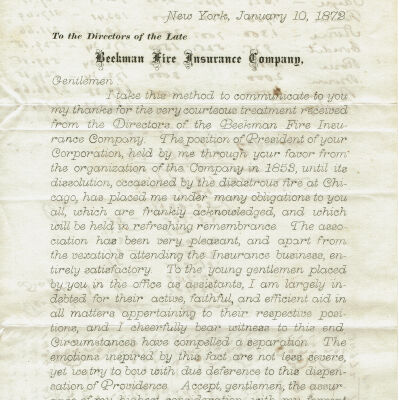 New York, January 10, 1872
To the Directors of the Late
Beekman Fire Insurance Company,
Gentlemen
I take this method to communicate to you
my thanks for the very courteous treatment received
from the Directors of the Beekman Fire Insu-
rance Company. The position of President of your
Corporation, held by me through your favor from
the organization of the Company in 1853, until its
dissolution, occasioned by the disastrous fire at Chi-
cago, has placed me under many obligations to you
all, which are frankly acknowledged, and which
will be held in refreshing remembrance The asso-
ciation has been very pleasant, and apart from
the vexations attending the Insurance business, en-
tirely satisfactory To the young gentlemen placed
by you in the office as assistants, I am largely in-
debted for their active, faithful, and efficient aid in
all matters appertaining to their respective posi-
tions, and I cheerfully bear witness to this end
Circumstances have compelled a separation The
emotions inspired by this fact are not less severe,
yet we try to bow with due deference to this dispen-
sation of Providence Accept, gentlemen, the assur-
ance of my highest consideration, with my fervent